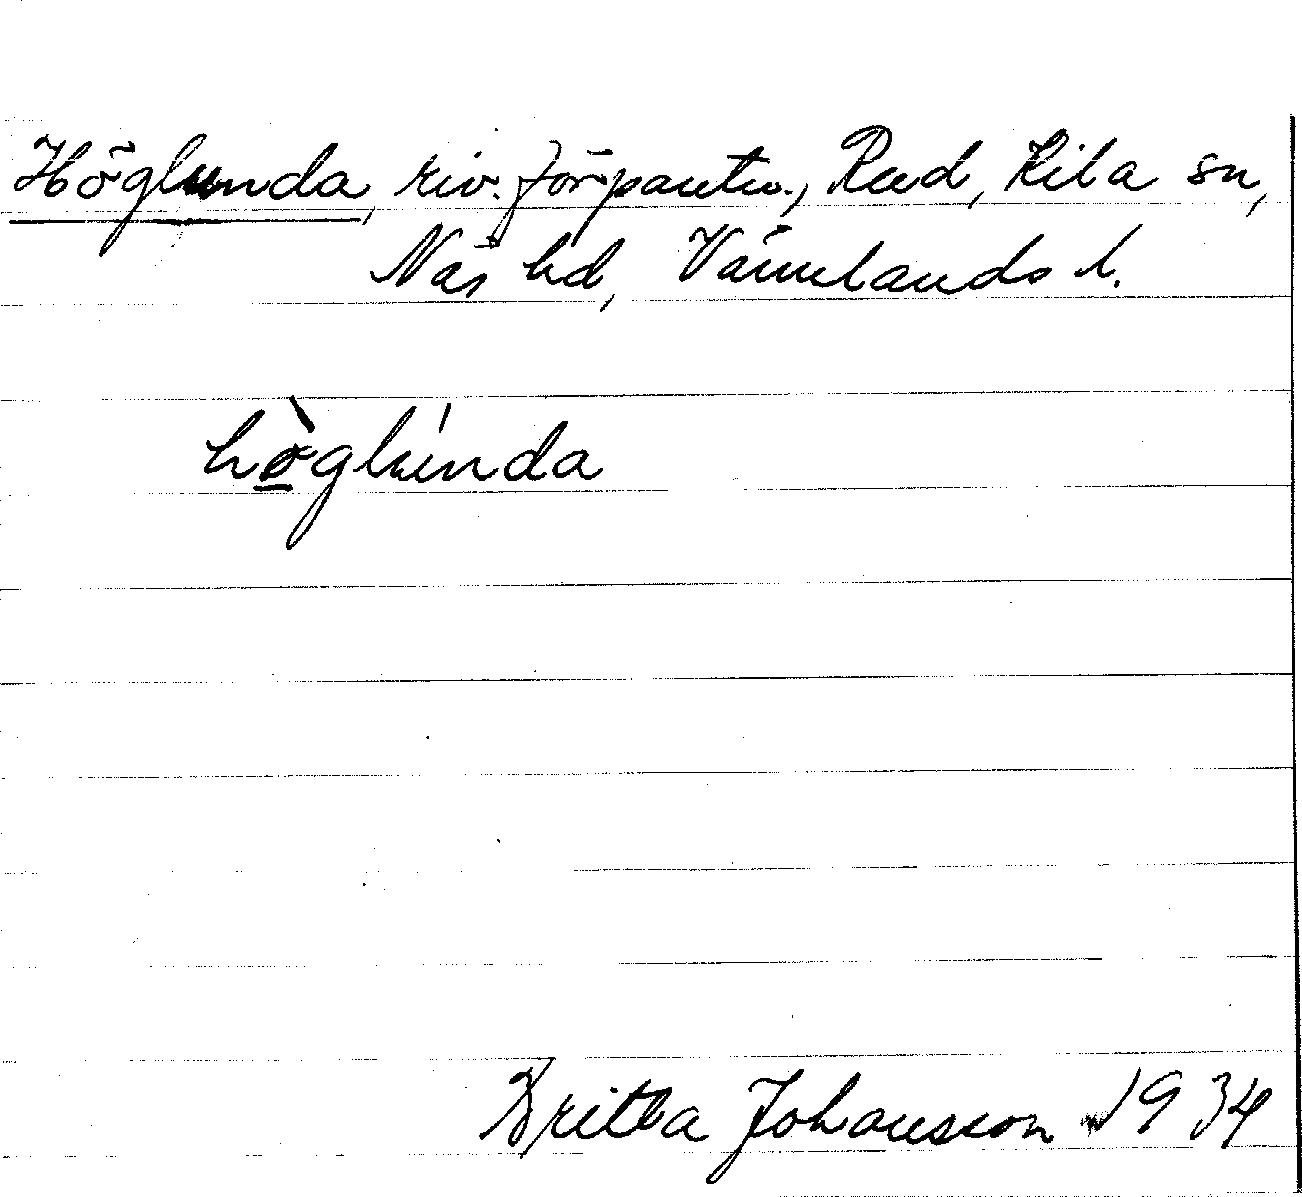 Höglunda, riv. förpantn., Rud, Kila sn,
Näs hd, Värmlands l.
hö̀glúnda
Britta Johansson 1934